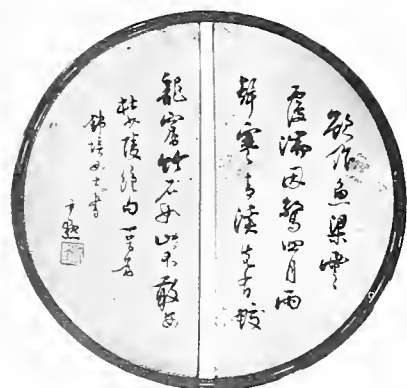 欲作魚梁雲
覆湍因驚四月雨
聲寒青溪先有蛟
龍窟竹石如山不敢安
杜少陵絕句一首
女士書
尹默